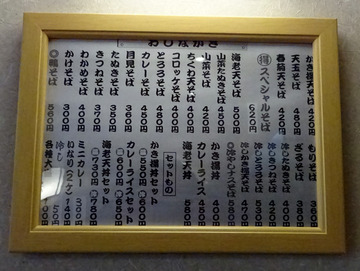 おしながき
かき揚天そば 420円
天玉そば 480円
春菊天そば 420円
得スペシャルそば 500円
海老天そば 520円
山菜たぬきそば 450円
山菜そば 420円
ちくわ天そば 400円
コロッケそば 400円
とろろそば 420円
カレーそば 450円
月見そば 360円
たぬきそば 360円
きつねそば 370円
わかめそば 400円
かけそば 300円
鴨そば 560円
もりそば 360円
ざるそば 380円
冷したぬきそば 400円
冷しきつねそば 420円
冷しとろろそば 430円
冷しかき揚天そば 470円
かき揚丼 400円
カレーライス 450円
海老天丼 580円
セットもの
かき揚丼セット
600円
カレーライスセット
600円
650円
海老天丼セット
730円
780円
ミニカレー 300円
いなり(2ケ) 140円
各種大 100円